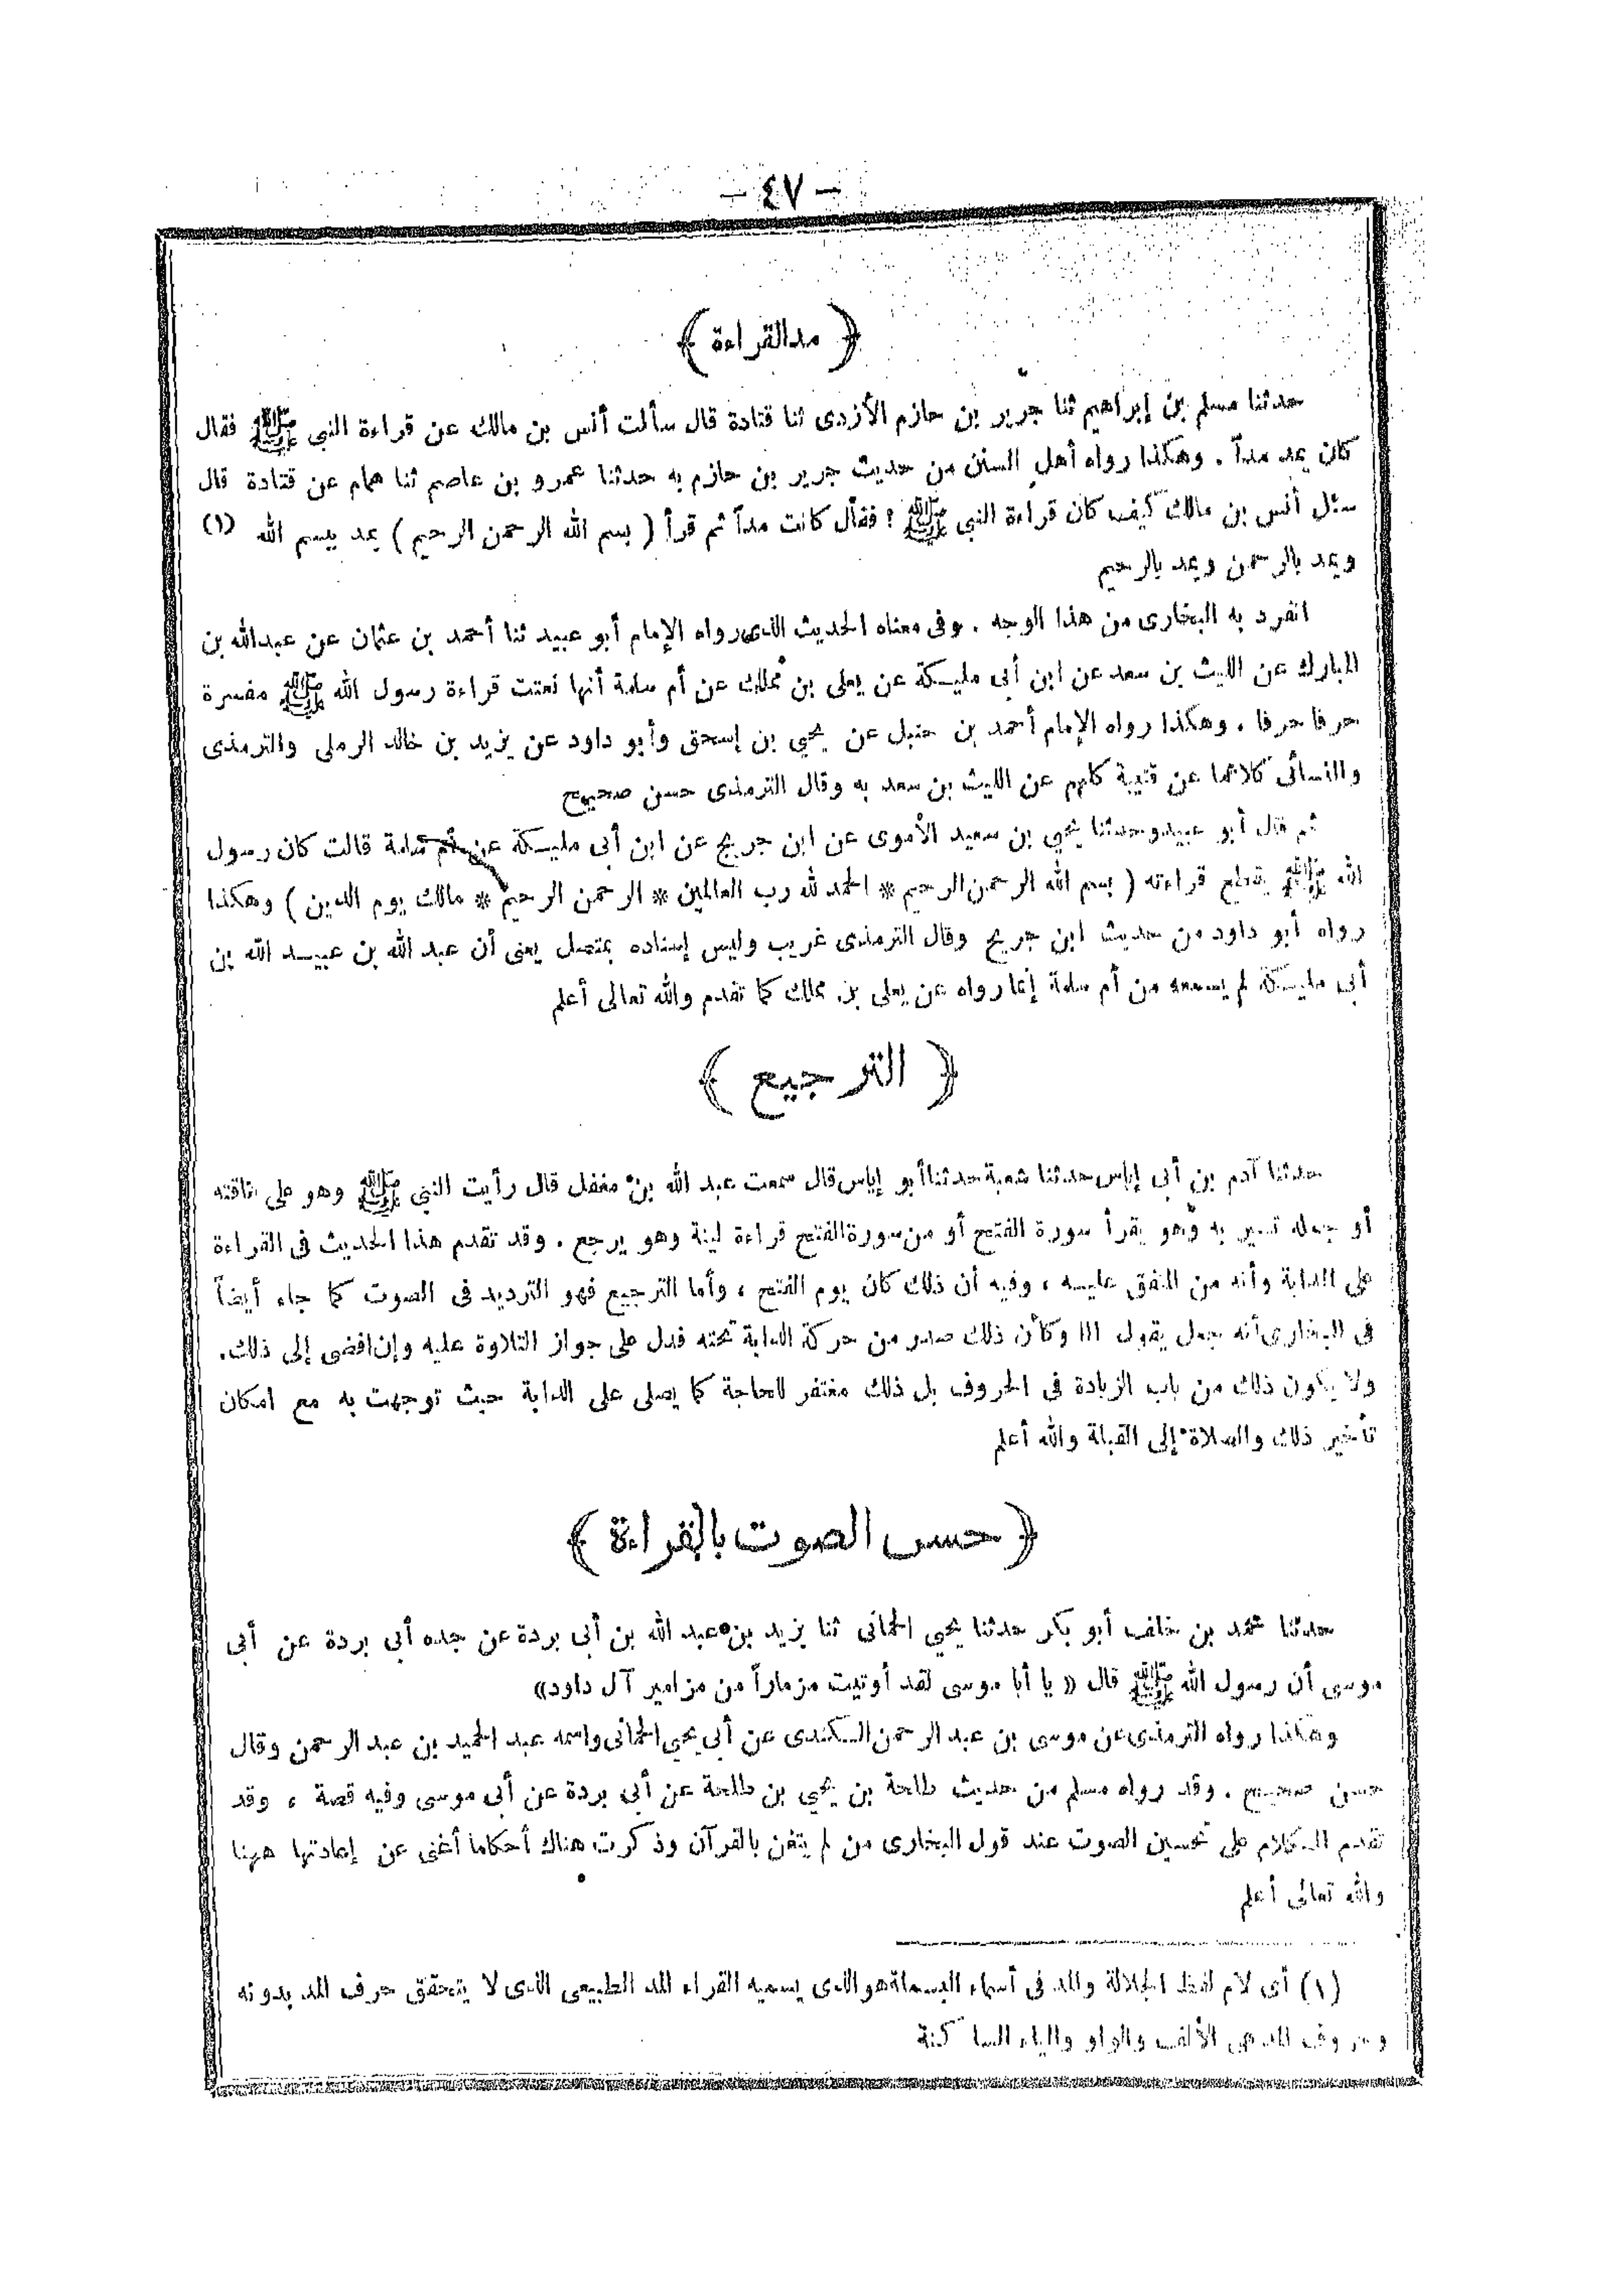 — ٤٧ —
﴿ مد القراءة ﴾
حدثنا مسلم بن إبراهيم ثنا جرير بن حازم الأزدى ثنا قتادة قال سألت أنس بن مالك عن قراءة النبي ﷺ فقال
كان يمد مداً . وهكذا رواه أهل السنن من حديث جرير بن حازم به حدثنا عمرو بن عاصم ثنا همام عن قتادة قال
سئل أنس بن مالك كيف كان قراءة النبي ﷺ ؟ فقال كانت مداً ثم قرأ ( بسم الله الرحمن الرحيم ) يمد ببسم الله (١)
ويمد بالرحمن ويمد بالرحيم
انفرد به البخارى من هذا الوجه . وفى معناه الحديث الذى رواه الإمام أبو عبيد ثنا أحمد بن عثمان عن عبدالله بن
المبارك عن الليث بن سعد عن ابن أبى مليكة عن يعلى بن مملك عن أم سلمة أنها نعتت قراءة رسول الله ﷺ مفسرة
حرفا حرفا . وهكذا رواه الإمام أحمد بن حنبل عن يحيي بن إسحق وأبو داود عن يزيد بن خالد الرملى والترمذى
والنسائى كلاهما عن قتيبة كلهم عن الليث بن سعد به وقال الترمذى حسن صحيح
ثم قال أبو عبيد وحدثنا يحيي بن سعيد الأموى عن ابن جريج عن ابن أبى مليكة عن أم سلمة قالت كان رسول
الله ﷺ يقطع قراءته ( بسم الله الرحمن الرحيم * الحمد لله رب العالمين * الرحمن الرحيم * مالك يوم الدين ) وهكذا
رواه أبو داود من حديث ابن جريج وقال الترمذى غريب وليس إسناده بمتصل يعنى أن عبد الله بن عبيد الله بن
أبى مليكة لم يسمعه من أم سلمة إنما رواه عن يعلى بن مملك كما تقدم والله تعالى أعلم
﴿ الترجيع ﴾
حدثنا آدم بن أبى إياس حدثنا شعبة حدثنا أبو إياس قال سمعت عبد الله بن مغفل قال رأيت النبي ﷺ وهو على ناقته
أو جمله تسير به وهو يقرأ سورة الفتح أو من سورة الفتح قراءة لينة وهو يرجع . وقد تقدم هذا الحديث فى القراءة
على الدابة وأنه من المتفق عليه ، وفيه أن ذلك كان يوم الفتح ، وأما الترجيع فهو الترديد فى الصوت كما جاء أيضاً
فى البخارى أنه جعل يقول ااا وكأن ذلك صدر من حركة الدابة تحته فدل على جواز التلاوة عليه وإن افضى إلى ذلك .
ولا يكون ذلك من باب الزيادة فى الحروف بل ذلك مغتفر للحاجة كما يصلى على الدابة حيث توجهت به مع امكان
تأخير ذلك والصلاة إلى القبلة والله أعلم
﴿ حسن الصوت بالقراءة ﴾
حدثنا محمد بن خلف أبو بكر حدثنا يحيي الحمانى ثنا يزيد بن عبد الله بن أبى بردة عن جده أبى بردة عن أبى
موسى أن رسول الله ﷺ قال « يا أبا موسى لقد أوتيت مزماراً من مزامير آل داود»
وهكذا رواه الترمذى عن موسى بن عبد الرحمن الكندى عن أبى يحيي الحمانى واسمه عبد الحميد بن عبد الرحمن وقال
حسن صحيح . وقد رواه مسلم من حديث طلحة بن يحيي بن طلحة عن أبى بردة عن أبى موسى وفيه قصة ، وقد
تقدم الكلام على تحسين الصوت عند قول البخارى من لم يتغن بالقرآن وذكرت هناك أحكاما أغنى عن إعادتها ههنا
والله تعالى أعلم
(١) أى لام لفظ الجلالة والمد فى أسماء البسملة هو الذى يسميه القراء المد الطبيعى الذى لا يتحقق حرف المد بدونه
وحروف المد هى الألف والواو والياء الساكنة